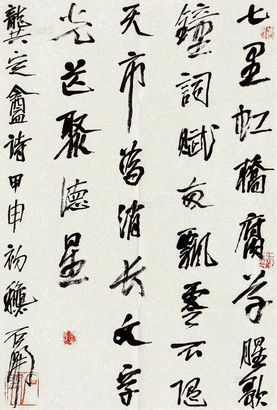 七里虹橋腐草腥歌
鐘詞賦兩飄零不隨
天市為消长文字
光芒聚德星
龔定盦詩甲申初穐